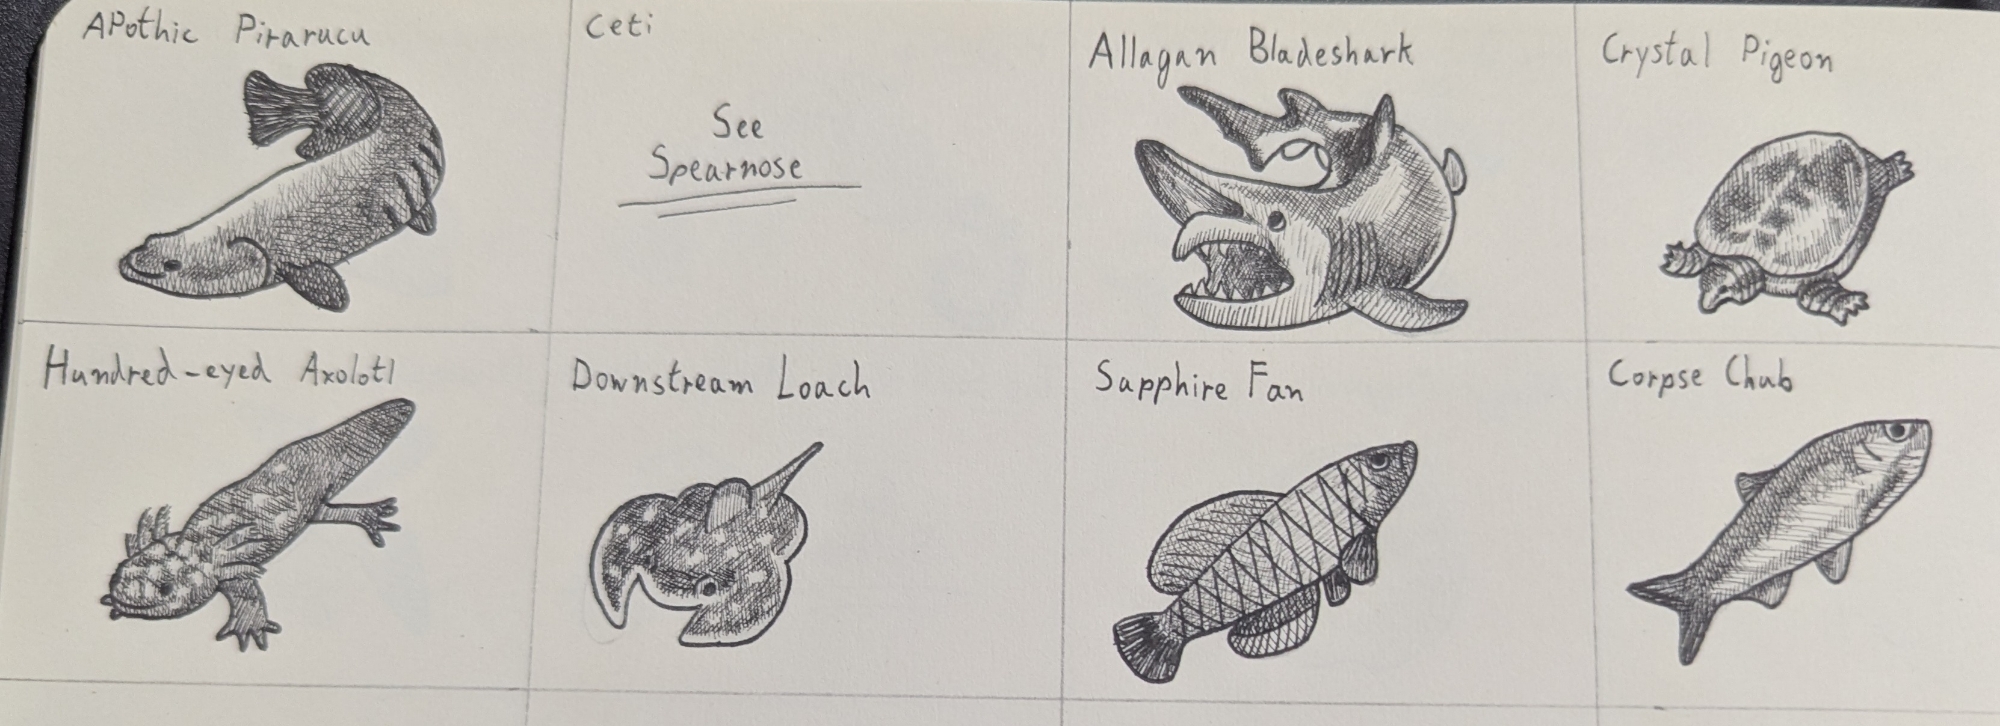 APothic Pirarucu
Ceti
See
Spearnose
Allagan Bladeshark
Crystal Pigeon
Hundred-eyed Axolotl
Downstream Loach
Sapphire Fan
Corpse Chub